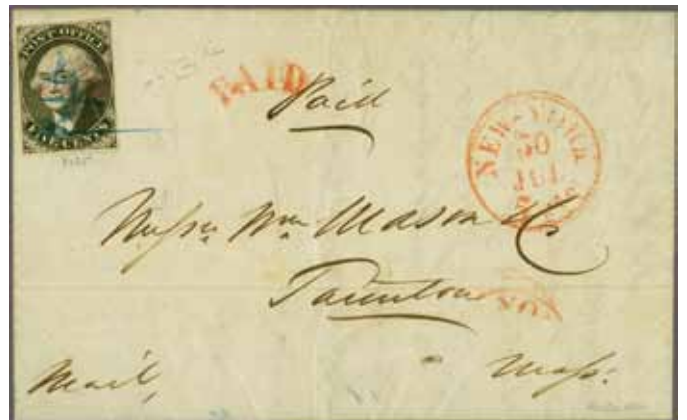 POST OFFICE
FIVE CENTS
PAID
Paid
NEW-YORK
30
JUL
Messrs Wm Mason & C
Taunton
Mail,
Mass: